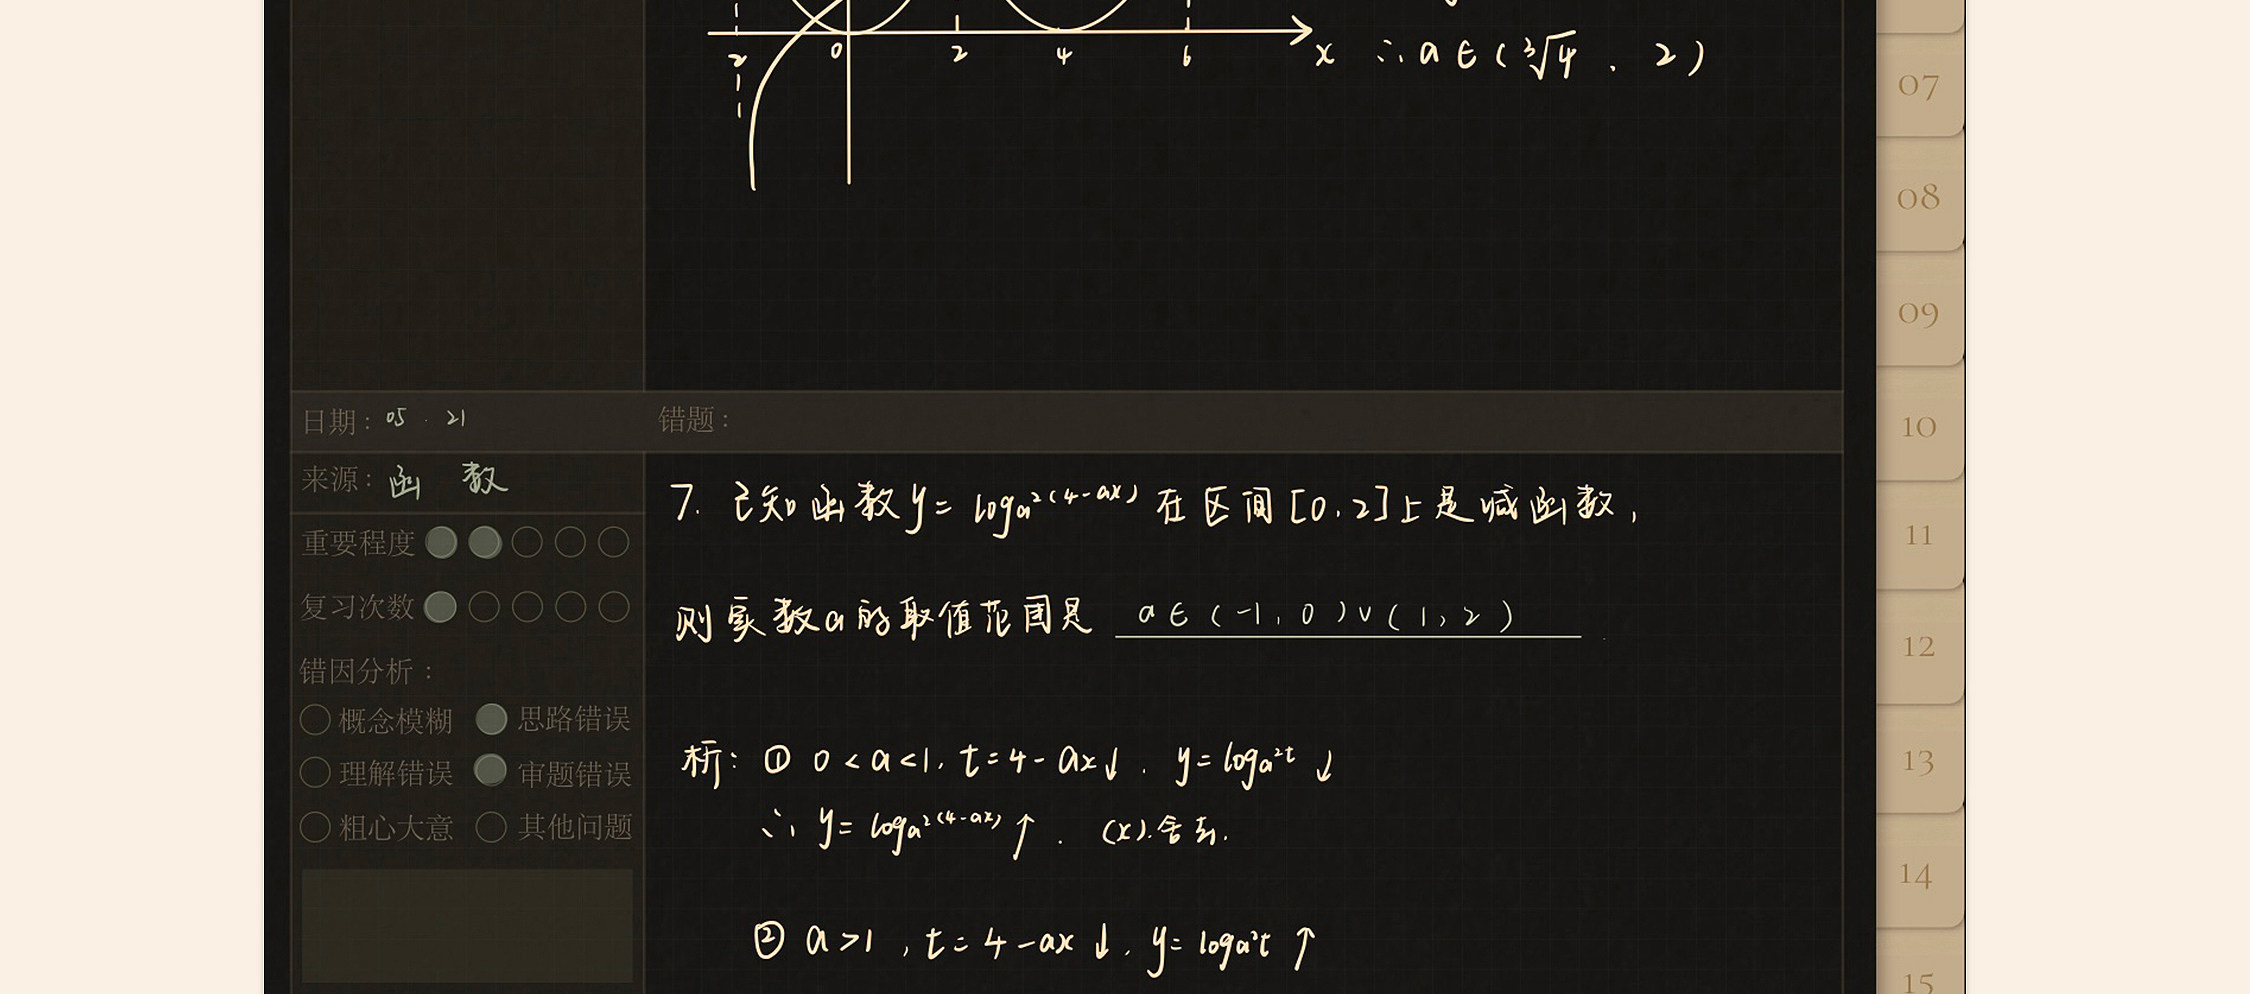 2 0 2 4 6 x ∴ a∈(³√4 , 2)
07
08
09
10
11
12
13
14
15
日期： 05 . 21
错题：
来源： 函 数
重要程度
复习次数
错因分析：
概念模糊 思路错误
理解错误 审题错误
粗心大意 其他问题
7. 已知函数y= loga²(4-ax) 在区间[0,2]上是减函数，
则实数a的取值范围是 a∈(-1,0)∨(1,2)
析: ① 0<a<1, t=4-ax↓. y=loga²t ↓
∴ y= loga²(4-ax)↑. (x).舍去.
② a>1 , t=4-ax↓. y=loga²t ↑